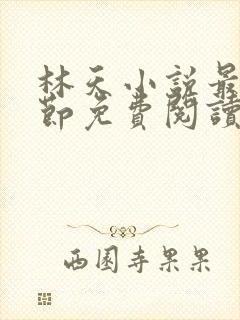 林天小说最
節免費閱讀
西園寺果果